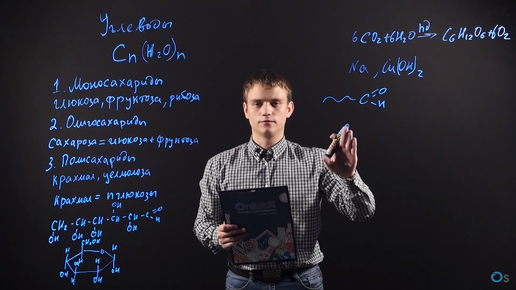 Углеводы
Cn(H₂O)n
1. Моносахариды
глюкоза, фруктоза, рибоза
2. Олигосахариды
сахароза = глюкоза + фруктоза
3. Полисахариды
крахмал, целлюлоза
крахмал = n глюкозы
OH
CH₂ - CH - CH - CH - CH - C O H
OH OH OH OH
CH₂OH
O
H H
OH
H OH
6CO₂ + 6H₂O hν → C₆H₁₂O₆ + 6O₂
Na, Cu(OH)₂
C O H
Os